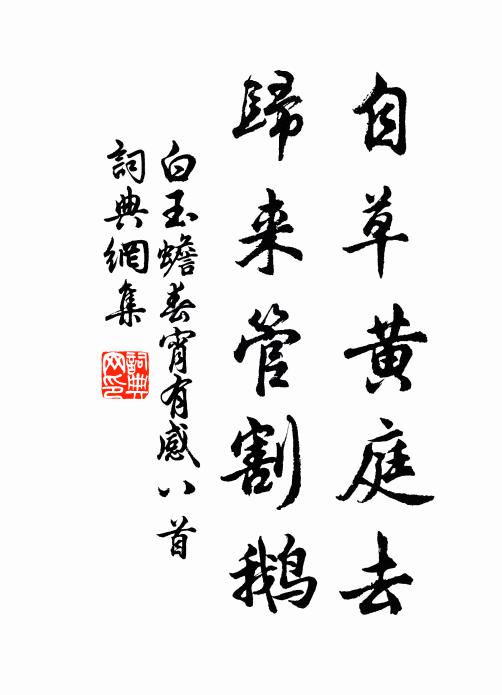 自草黄庭去
歸来管割鵝
白玉蟾春宵有感八首
詞典網集
詞典网印